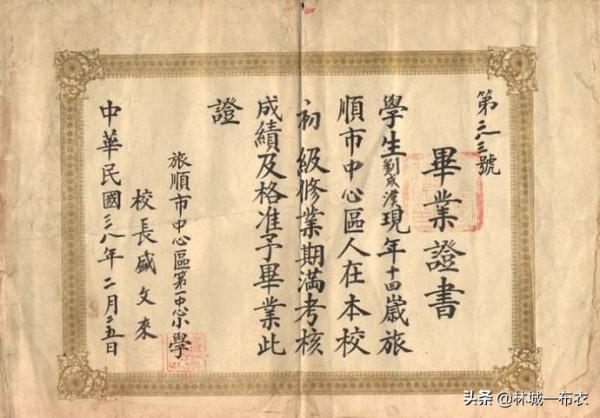 畢業證書
第二八三號
學生劉成漢現年十四歲旅
順市中心區人在本校
初級修業期滿考核
成績及格准予畢業此
證
旅順市中心區第一中心小學
校長盛文來
中華民國三八年二月二五日
头条@林城一布衣